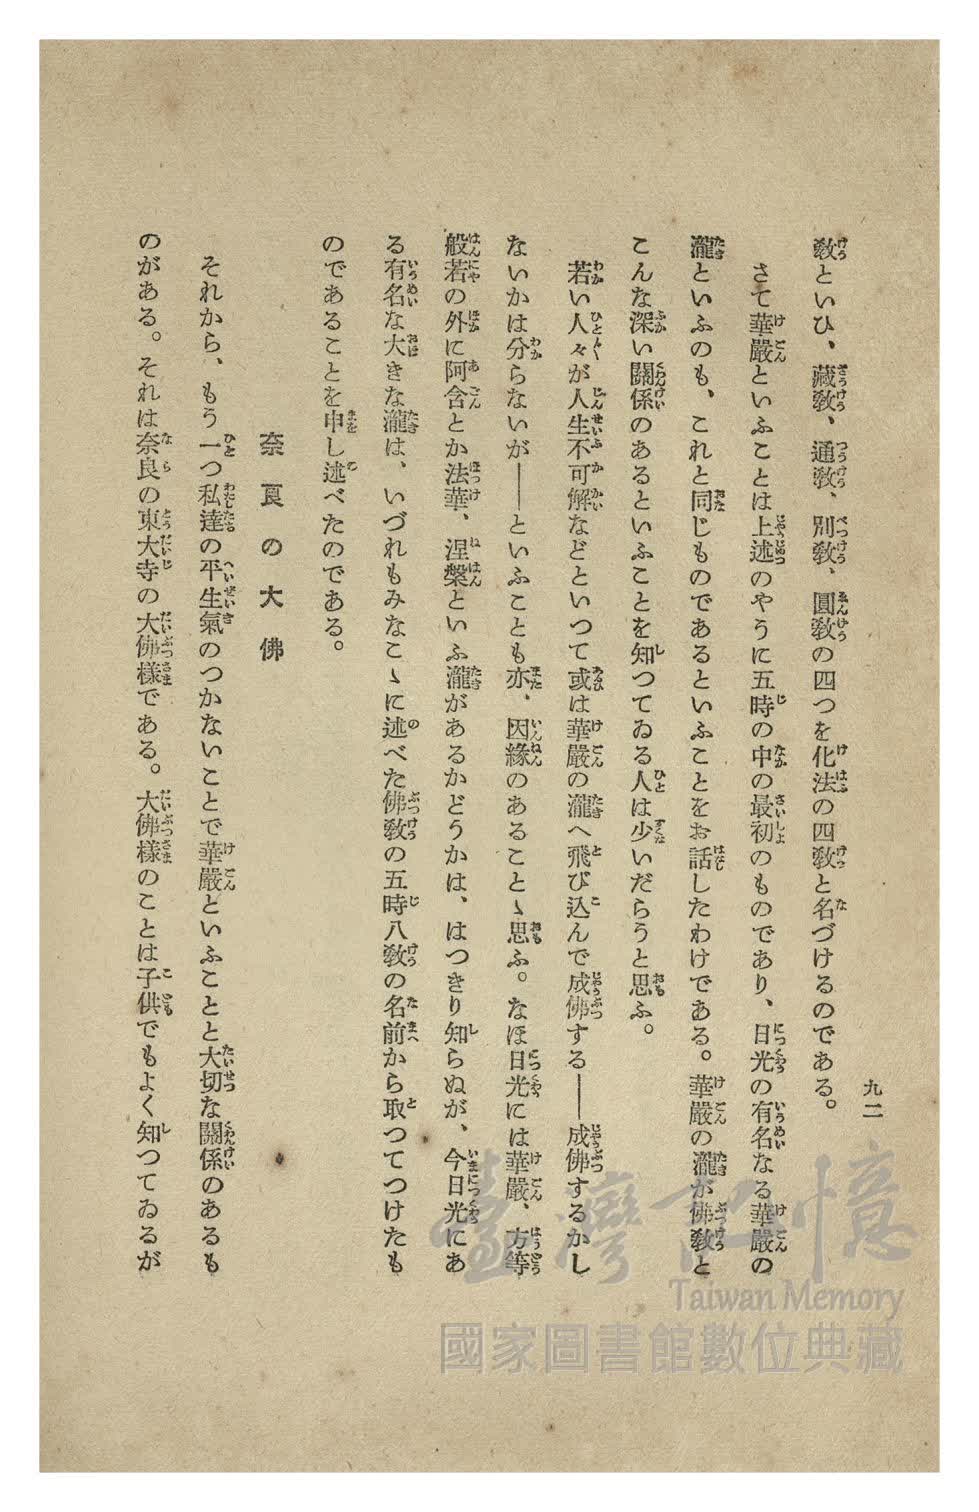 九二
敎といひ、藏敎、通敎、別敎、圓敎の四つを化法の四敎と名づけるのである。
さて華嚴といふことは上述のやうに五時の中の最初のものであり、日光の有名なる華嚴の
瀧といふのも、これと同じものであるといふことをお話したわけである。華嚴の瀧が佛敎と
こんな深い關係のあるといふことを知つてゐる人は少いだらうと思ふ。
若い人々が人生不可解などといつて或は華嚴の瀧へ飛び込んで成佛する――成佛するかし
ないかは分らないが――といふことも亦、因緣のあることゝ思ふ。なほ日光には華嚴、方等
般若の外に阿含とか法華、涅槃といふ瀧があるかどうかは、はつきり知らぬが、今日光にあ
る有名な大きな瀧は、いづれもみなこゝに述べた佛敎の五時八敎の名前から取つてつけたも
のであることを申し述べたのである。
奈良の大佛
それから、もう一つ私達の平生氣のつかないことで華嚴といふことと大切な關係のあるも
のがある。それは奈良の東大寺の大佛樣である。大佛樣のことは子供でもよく知つてゐるが
臺灣記憶
Taiwan Memory
國家圖書館數位典藏